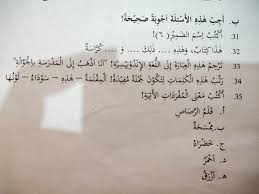 ب. أَجِبْ هَذِهِ الأَسْئِلَةَ أَجْوِبَةً صَحِيْحَةً!
31. أُكْتُبْ إِسْمَ الضَّمِيْرِ (٦)!
32. هَذَا كِتَابٌ، وَهَذِهِ .... ذَلِكَ .... وَ .... كُرَّاسَةٌ
33. تَرْجِمْ هَذِهِ الْعِبَارَةَ إِلَى اللُّغَةِ الإِنْدُوْنِيْسِيَّةِ! "أَنَا أَذْهَبُ إِلَى الْمَدْرَسَةِ بِالْجَوَّالَةِ"
34. رَتِّبْ هَذِهِ الْكَلِمَاتِ لِتَكُوْنَ جُمْلَةً مُفِيْدَةً! الْمِقْلَمَةُ – هَذِهِ – سَوْدَاءُ – لَوْنُهَا
35. أُكْتُبْ مَعْنَى الْمُفْرَدَاتِ الأَتِيَةِ!
أ. قَلَمُ الرَّصَاصِ
ب. مِمْسَحَةٌ
ج. خَضْرَاءُ
د. أَحْمَرُ
ه. أَزْرَقُ